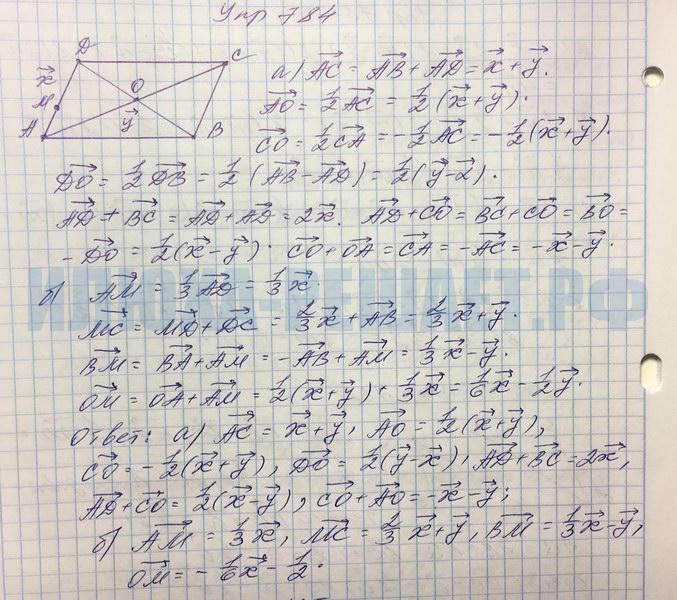 Упр 784
D C
x⃗ O
M
A y⃗ B
а) AC⃗ = AB⃗ + AD⃗ = x⃗ + y⃗.
AO⃗ = 1/2 AC⃗ = 1/2 (x⃗ + y⃗).
CO⃗ = 1/2 CA⃗ = -1/2 AC⃗ = -1/2 (x⃗ + y⃗).
DO⃗ = 1/2 DB⃗ = 1/2 (AB⃗ - AD⃗) = 1/2 (y⃗ - 2⃗).
AD⃗ + BC⃗ = AD⃗ + AD⃗ = 2x⃗. AD⃗ + CO⃗ = BC⃗ + CO⃗ = BO⃗ =
- DO⃗ = 1/2 (x⃗ - y⃗). CO⃗ + OA⃗ = CA⃗ = - AC⃗ = - x⃗ - y⃗.
б) AM⃗ = 1/3 AD⃗ = 1/3 x⃗.
MC⃗ = MD⃗ + DC⃗ = 2/3 x⃗ + AB⃗ = 2/3 x⃗ + y⃗.
BM⃗ = BA⃗ + AM⃗ = - AB⃗ + AM⃗ = 1/3 x⃗ - y⃗.
OM⃗ = OA⃗ + AM⃗ = 1/2 (x⃗ + y⃗) + 1/3 x⃗ = 1/6 x⃗ - 1/2 y⃗.
Ответ: а) AC⃗ = x⃗ + y⃗, AO⃗ = 1/2 (x⃗ + y⃗),
CO⃗ = -1/2 (x⃗ + y⃗), DO⃗ = 1/2 (y⃗ - x⃗), AD⃗ + BC⃗ = 2x⃗,
AD⃗ + CO⃗ = 1/2 (x⃗ - y⃗), CO⃗ + AO⃗ = - x⃗ - y⃗;
б) AM⃗ = 1/3 x⃗, MC⃗ = 2/3 x⃗ + y⃗, BM⃗ = 1/3 x⃗ - y⃗,
OM⃗ = - 1/6 x⃗ - 1/2.